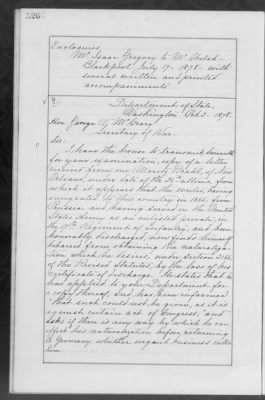 Enclosures.
Mr. Isaac Gregory to Mr. Welsh
Blackpool, July 17. 1878. with
several written and printed
accompaniments
Department of State,
Washington Oct. 2. 1878.
Hon. George W. McCrary
Secretary of War.
Sir:
I have the honor to transmit herewith
for your examination, copy of a letter
recent from one Moritz, of New
Orleans, under date of the ultimo, from
which it appears that the writer, having
emigrated to this country in 1866, from
Prussia, and having served in the United
States Army as an enlisted private, in
the 19th Regiment of infantry, and been
honorably discharged, now finds himself
debarred from obtaining the naturaliza-
tion which he desires, under section 2166.
of the Revised Statutes, by the loss of his
certificate of discharge. He states that he
has applied to your Department for
a copy thereof, and has been informed
"that such could not be given, as it is
against certain act of Congress;" and
asks if there is any way by which he can
effect his naturalization before returning
to Germany, whither urgent business calls
him.